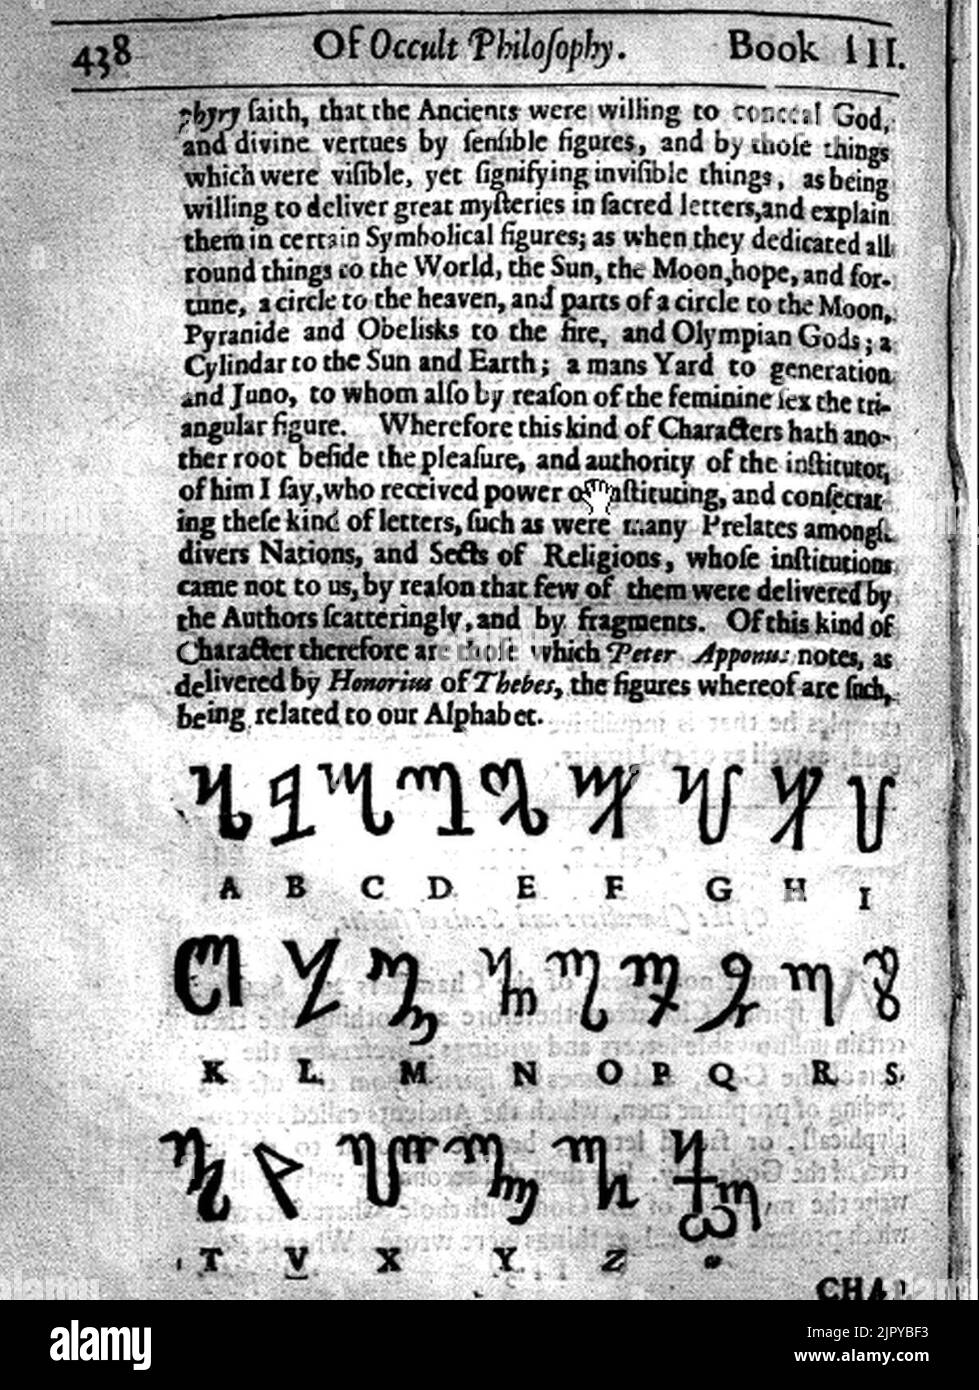 438 Of Occult Philoſophy. Book III.
phyry ſaith, that the Ancients were willing to conceal God,
and divine vertues by ſenſible figures, and by thoſe things
which were viſible, yet ſignifying inviſible things, as being
willing to deliver great myſteries in ſacred letters, and explain
them in certain Symbolical figures; as when they dedicated all
round things to the World, the Sun, the Moon, hope, and for-
tune, a circle to the heaven, and parts of a circle to the Moon,
Pyranide and Obelisks to the fire, and Olympian Gods; a
Cylindar to the Sun and Earth; a mans Yard to generation
and Juno, to whom alſo by reaſon of the feminine ſex the tri-
angular figure. Wherefore this kind of Characters hath ano-
ther root beſide the pleaſure, and authority of the inſtitutor,
of him I ſay, who received power of inſtituting, and conſecrat-
ing theſe kind of letters, ſuch as were many Prelates amongſt
divers Nations, and Sects of Religions, whoſe inſtitutions
came not to us, by reaſon that few of them were delivered by
the Authors ſcatteringly, and by fragments. Of this kind of
Character therefore are thoſe which Peter Apponus notes, as
delivered by Honorius of Thebes, the figures whereof are ſuch,
being related to our Alphabet.
A B C D E F G H I
K L M N O P Q R S
T V X Y Z
CHAP
alamy
Image ID: 2JPYBF3
www.alamy.com